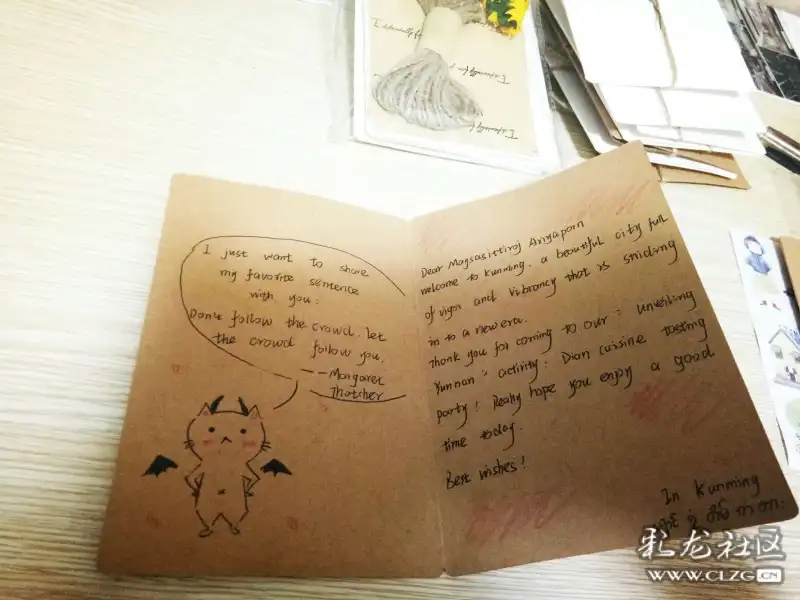 I just want to share
my favorite sentence
with you:
Don't follow the crowd. let
the crowd follow you.
——Margaret
Thatcher
Dear Mogsasitiroj Anyaporn
welcome to Kunming. a beautiful city full
of vigor and vibrancy that is striding
in to a new era.
Thank you for coming to our: unveiling
Yunnan's activity: Dian cuisine tasting
party! Really hope you enjoy a good
time today.
Best wishes!
In Kunming
彩龙社区
WWW.CLZG.CN